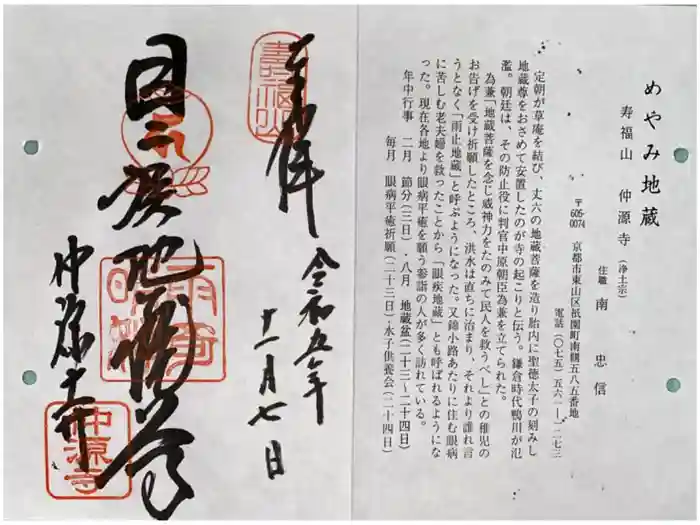 めやみ地蔵
寿福山 仲源寺 (浄土宗)
住職 南忠信
〒605-0074 京都市東山区祇園町南側五八五番地
電話(〇七五)五六一―一二七三
定朝が草庵を結び、丈六の地蔵菩薩を造り胎内に聖徳太子の刻みし
地蔵尊をおさめて安置したのが寺の起こりと伝う。鎌倉時代鴨川が氾
濫。朝廷は、その防止役に判官中原朝臣為兼を立てられた。
為兼「地蔵菩薩を念じ威神力をたのみて民人を救うべし」との稚児の
お告げを受け祈願したところ、洪水は直ちに治まり、それより誰れ言
うとなく「雨止地蔵」と呼ぶようになった。又錦小路あたりに住む眼病
に苦しむ老夫婦を救ったことから「眼疾地蔵」とも呼ばれるようにな
った。現在各地より眼病平癒を願う参詣の人が多く訪れている。
年中行事 二月 節分(三日)・八月 地蔵盆(二十三～二十四日)
毎月 眼病平癒祈願(二十三日)・水子供養会(二十四日)
奉拝
令和五年
十一月七日
寿福山
雨奇
仲源寺
仲源寺